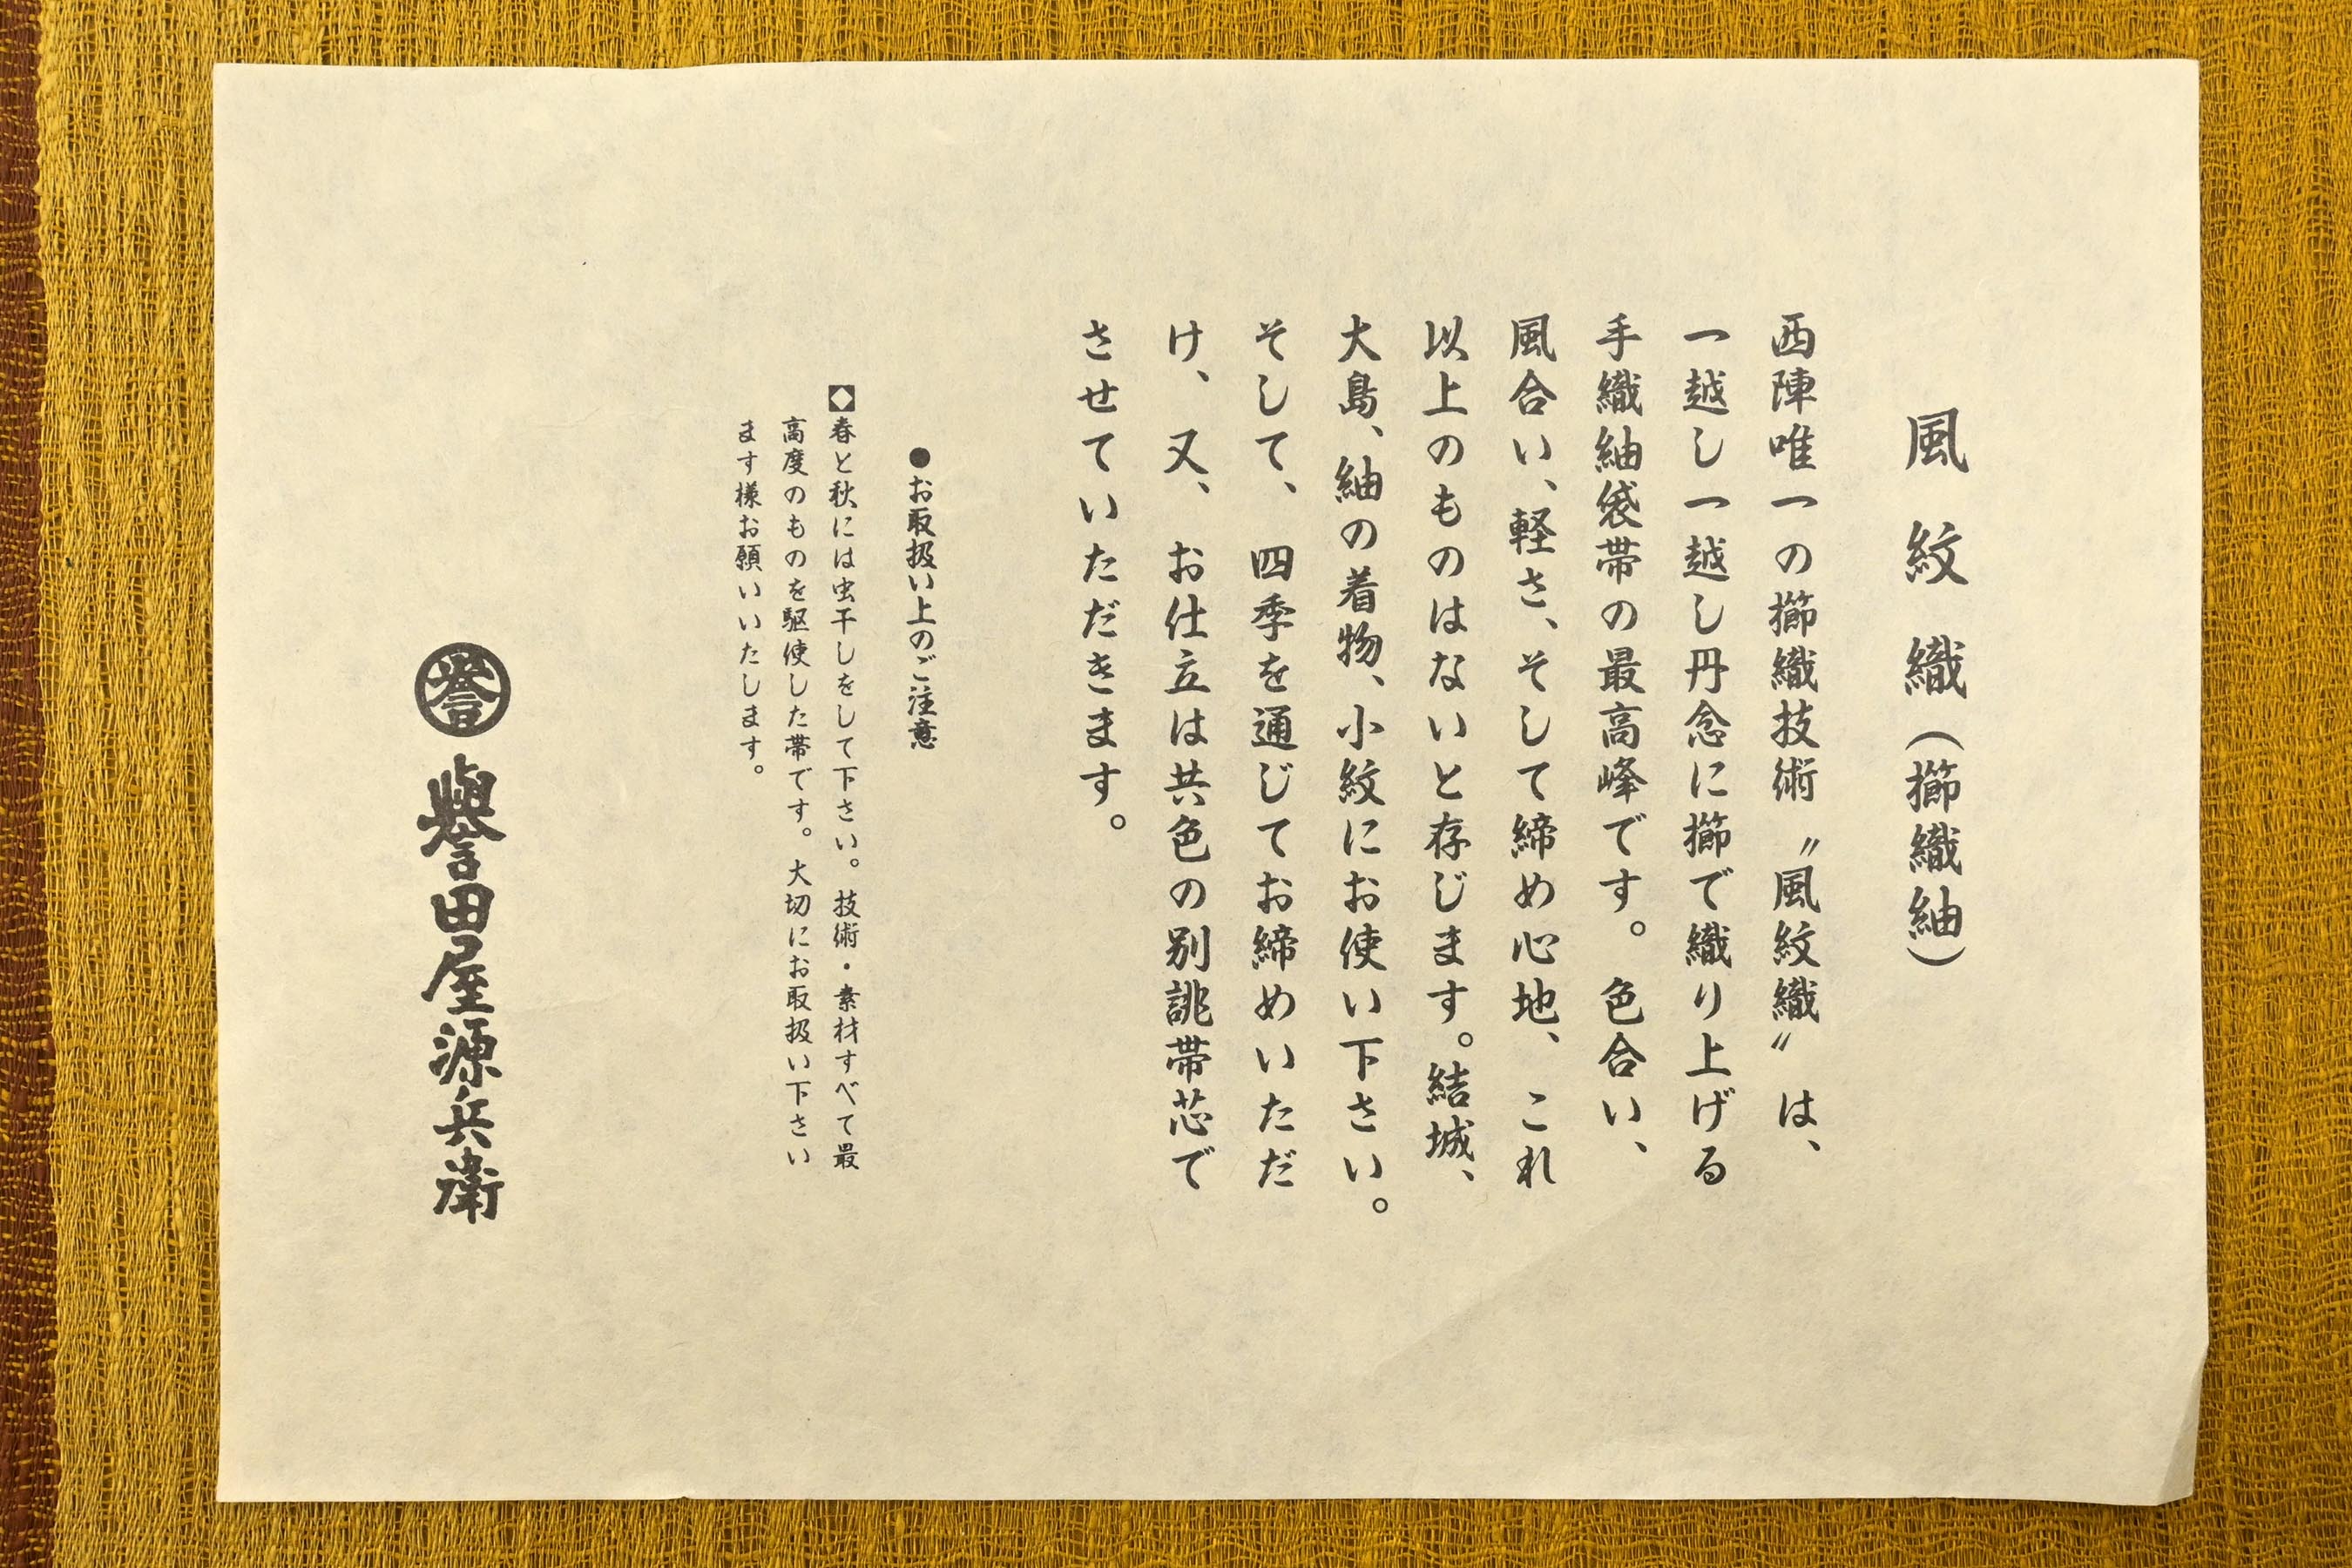 風紋織（擳織紬）
西陣唯一の擳織技術〝風紋織〟は、
一越し一越し丹念に擳で織り上げる
手織紬袋帯の最高峰です。色合い、
風合い、軽さ、そして締め心地、これ
以上のものはないと存じます。結城、
大島、紬の着物、小紋にお使い下さい。
そして、四季を通じてお締めいただ
け、又、お仕立は共色の別誂帯芯で
させていただきます。
●お取扱い上のご注意
◇春と秋には虫干しをして下さい。技術・素材すべて最
高度のものを駆使した帯です。大切にお取扱い下さい
ます様お願いいたします。
誉 譽田屋源兵衛